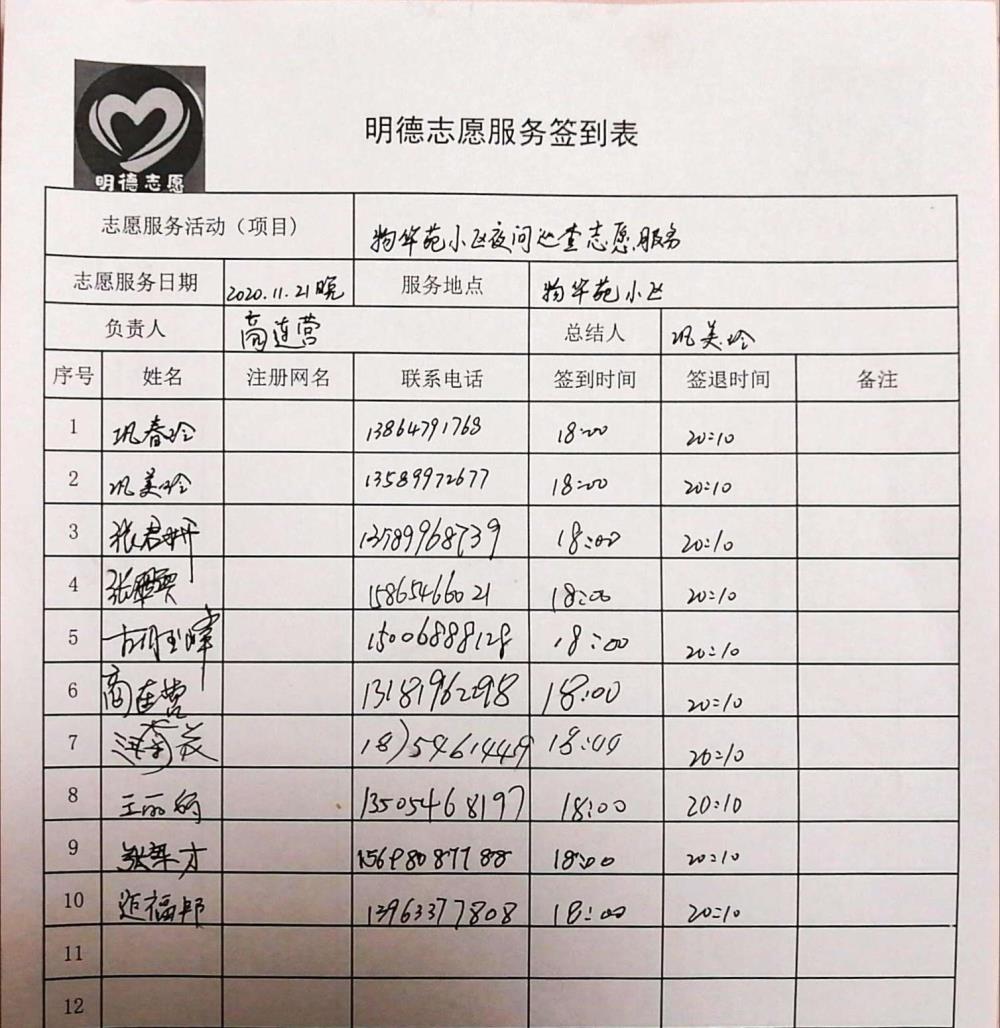 明德志愿
明德志愿服务签到表
志愿服务活动（项目） 物华苑小区夜间巡查志愿服务
志愿服务日期 2020.11.21晚 服务地点 物华苑小区
负责人 高连营 总结人 巩美玲
序号 姓名 注册网名 联系电话 签到时间 签退时间 备注
1 巩春玲 13864791768 18:00 20:10
2 巩美玲 13589972677 18:00 20:10
3 张君 13589968739 18:00 20:10
4 张 15865466021 18:00 20:10
5 15006888128 18:00 20:10
6 高连营 13181962298 18:00 20:10
7 18:00 20:10
8 王丽娟 13505468197 18:00 20:10
9 15698087788 18:00 20:10
10 13963377808 18:00 20:10
11
12